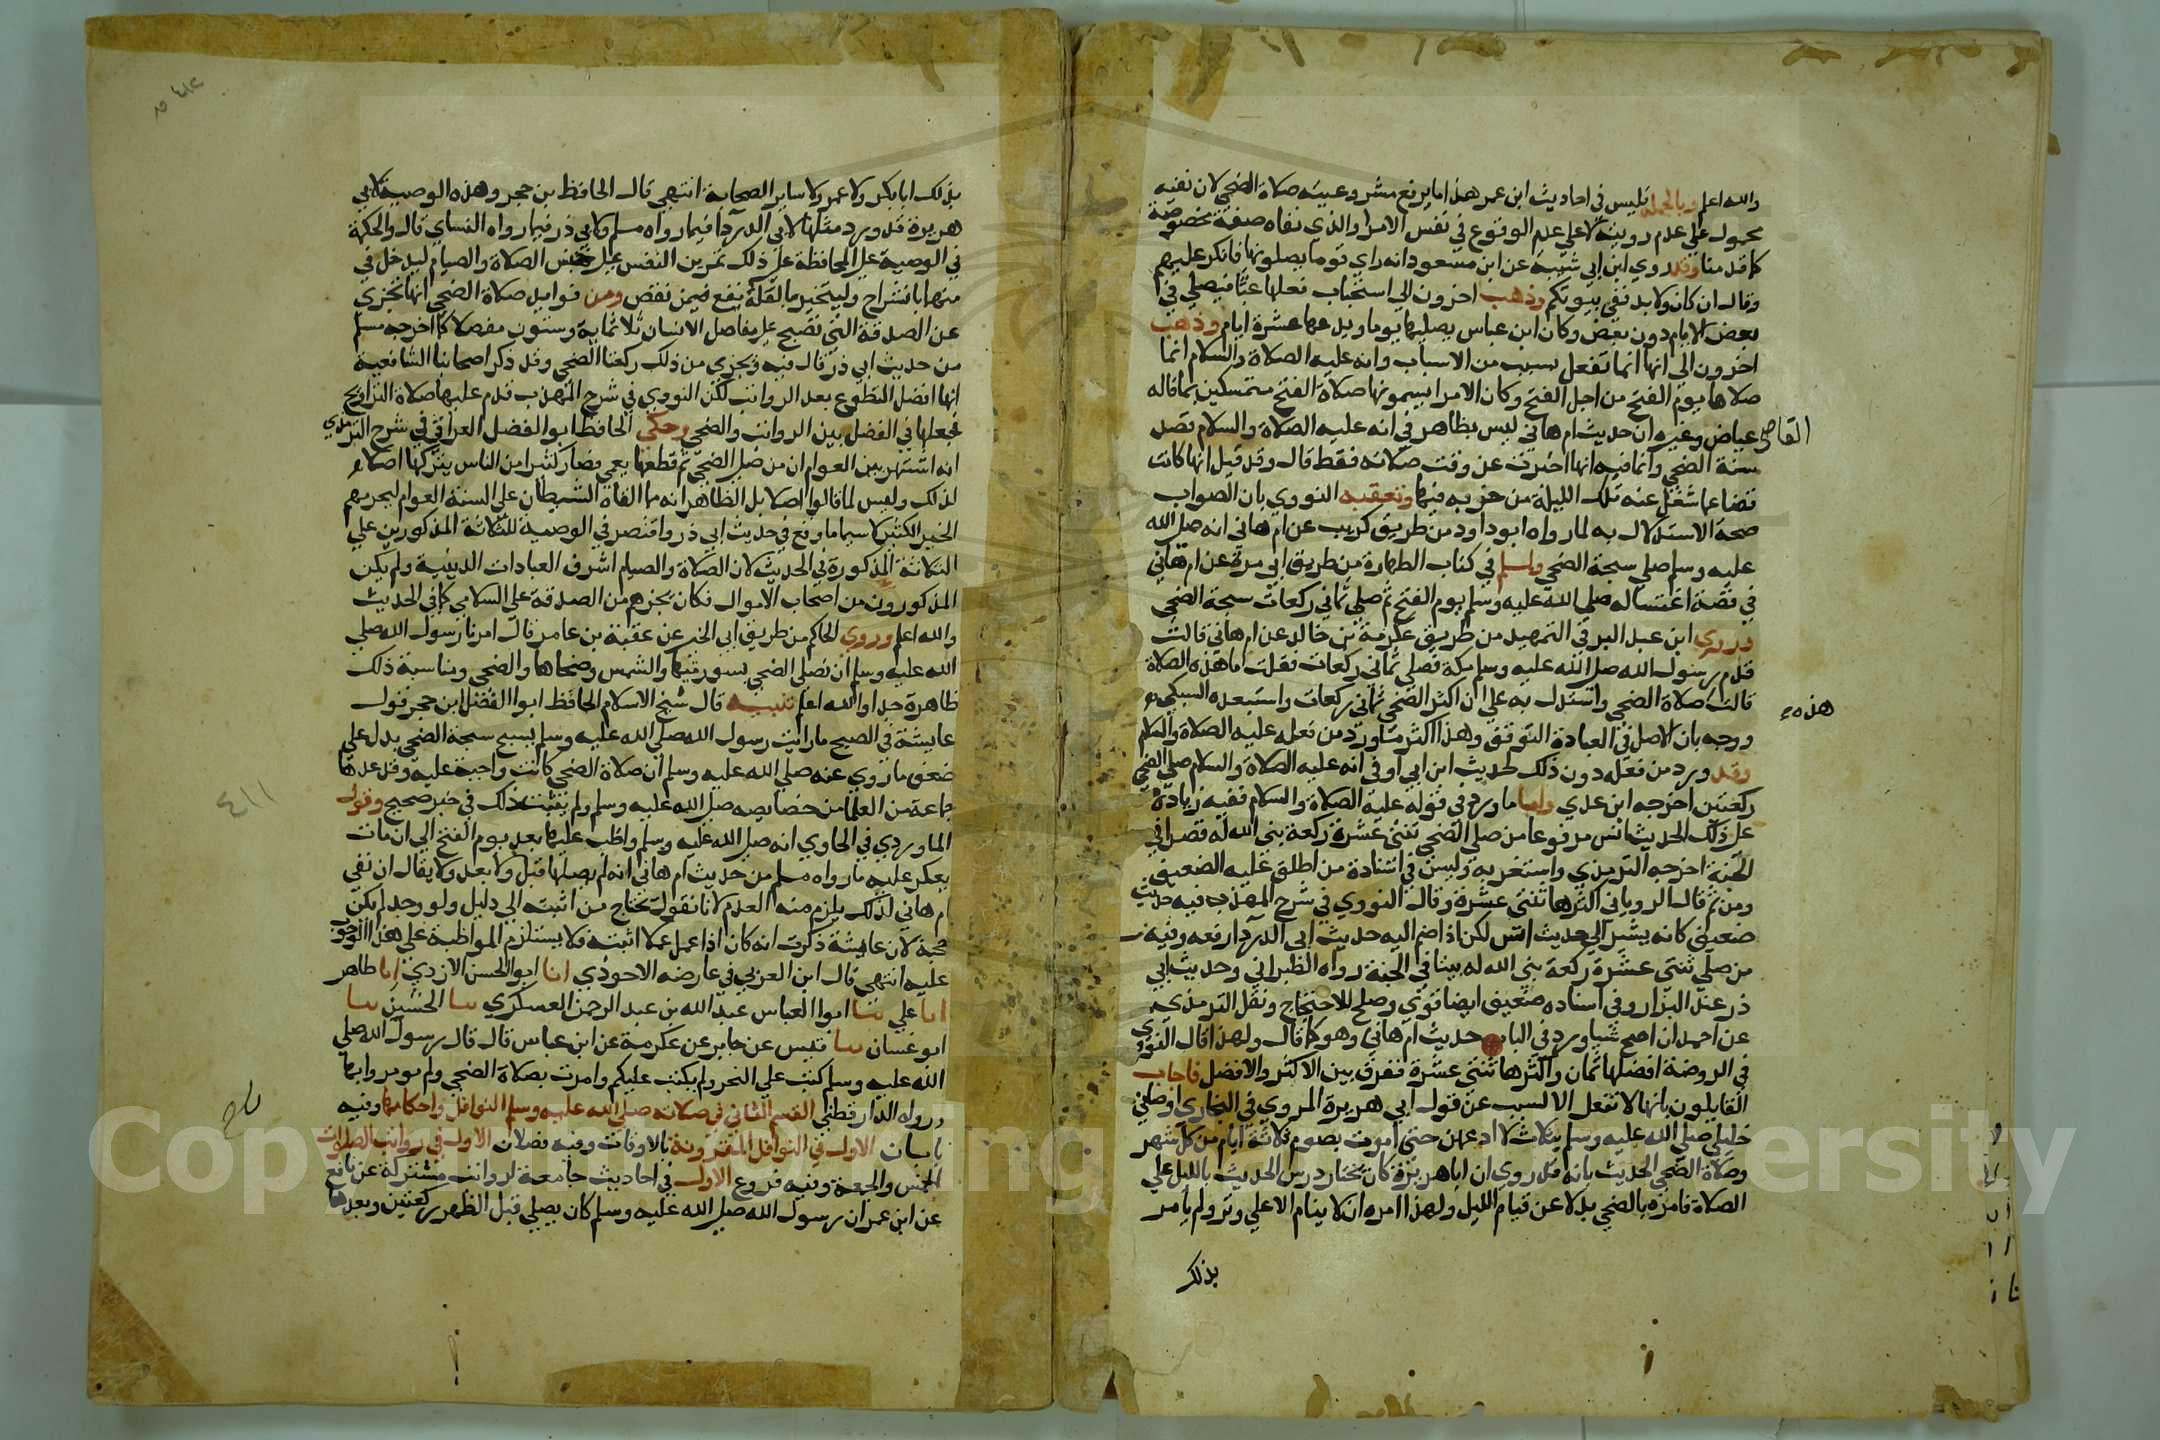 والله اعلم وبالجملة فليس في احاديث ابن عمر هذا ما يرفع مشروعية صلاة الضحي لان نفيه
محمول علي عدم رويته لا علي عدم الوقوع في نفس الامر او الذي نفاه صفة مخصوصة
كما قدمنا وقد روي ابن ابي شيبة عن ابن مسعود انه راي قوما يصلونها فانكر عليهم
وقال ان كان ولا بد ففي بيوتكم وذهب اخرون الي استحباب فعلها غبا فيصلي في
بعض الايام دون بعض وكان ابن عباس يصليها يوما ويدعها عشرة ايام وذهب
اخرون الي انها انما تفعل بسبب من الاسباب وانه عليه الصلاة والسلام انما
صلاها يوم الفتح من اجل الفتح وكان الامرا يسمونها صلاة الفتح متمسكين بما قاله
القاضي عياض وغيره ان حديث ام هاني ليس بظاهر في انه عليه الصلاة والسلام قصد
سنة الضحي وانما فيه انها اخبرت عن وقت صلاته فقط قال وقد قيل انها كانت
قضا عما شغل عنه تلك الليلة من حزبه فيها وتعقبه النووي بان الصواب
صحة الاستدلال به لما رواه ابو داود من طريق كريب عن ام هاني انه صلي الله
عليه وسلم صلي سبحة الضحي ولمسلم في كتاب الطهارة من طريق ابي مرة عن ام هاني
في قصة اغتساله صلي الله عليه وسلم يوم الفتح ثم صلي ثماني ركعات سبحة الضحي
وروي ابن عبد البر في التمهيد من طريق عكرمة بن خالد عن ام هاني قالت
قدم رسول الله صلي الله عليه وسلم مكة فصلي ثماني ركعات فقلت ما هذه الصلاة
هذه
قالت صلاة الضحي واستدل به علي ان اكثر الضحي ثماني ركعات واستبعده السبكي
ووجه بان الاصل في العبادة التوقف وهذا اكثر ما ورد من فعله عليه الصلاة والسلام
وقد ورد من فعله دون ذلك لحديث ابن ابي اوفي انه عليه الصلاة والسلام صلي الضحي
ركعتين اخرجه ابن عدي واما ما ورد في قوله عليه الصلاة والسلام ففيه زيادة
علي ذلك الحديث انس مرفوعا من صلي الضحي ثنتي عشرة ركعة بني الله له قصرا في
الجنة اخرجه الترمذي واستغربه وليس في اسناده من اطلق عليه الضعيف
ومن ثم قال الروياني اكثرها ثنتي عشرة وقال النووي في شرح المهذب فيه حديث
ضعيف كانه يشير الي حديث انس لكن اذا ضم اليه حديث ابي الدردا رفعه وفيه
من صلي ثنتي عشرة ركعة بني الله له بيتا في الجنة رواه الطبراني وحديث ابي
ذر عند البزار وفي اسناده ضعيف ايضا قوي وصلح للاحتجاج ونقل الترمذي
عن احمد ان اصح شيا ورد في الباب حديث ام هاني وهو كما قال ولهذا قال النووي
في الروضة افضلها ثمان واكثرها ثنتي عشرة ففرق بين الاكثر والافضل فاجاب
القايلون بانها لا تفعل الا لسبب عن قول ابي هريرة المروي في البخاري اوصاني
خليلي صلي الله عليه وسلم بثلاث لا ادعهن حتي اموت بصوم ثلاثة ايام من كل شهر
وصلاة الضحي الحديث بانه قد روي ان ابا هريرة كان يختار درس الحديث بالليل علي
الصلاة فامره بالضحي بدلا عن قيام الليل ولهذا امره ان لا ينام الا علي وتر ولم يامر
بذلك
بذلك ابا بكر ولا عمر ولا ساير الصحابة انتهي قال الحافظ بن حجر وهذه الوصية لابي
هريرة قد ورد مثلها لابي الدردا فيما رواه مسلم ولابي ذر فيما رواه النساي قال والحكمة
في الوصية علي المحافظة علي ذلك تمرين النفس علي جنس الصلاة والصيام ليدخل في
منهما بانشراح وليتخير ما لعله يقع فيهن نقص ومن فوايد صلاة الضحي انها تجزي
عن الصدقة التي تصبح علي مفاصل الانسان ثلاثماية وستون مفصلا كما اخرجه مسلم
من حديث ابي ذر قال فيه ويجزي من ذلك ركعتا الضحي وقد ذكر اصحابنا الشافعية
انها افضل التطوع بعد الرواتب لكن النووي في شرح المهذب قدم عليها صلاة التراويح
فجعلها في الفضل بين الرواتب والضحي وحكي الحافظ ابو الفضل العراقي في شرح الترمذي
انه اشتهر بين العوام ان من صلي الضحي ثم قطعها يعمي فصار كثير من الناس يتركها اصلا
لذلك وليس لما قالوا اصلا بل الظاهر انه مما القاه الشيطان علي السنة العوام ليحرمهم
الخير الكثير لا سيما ما وقع في حديث ابي ذر واقتصر في الوصية للثلاثة المذكورين علي
الثلاثة المذكورة في الحديث لان الصلاة والصيام اشرف العبادات البدنية ولم يكن
المذكورون من اصحاب الاموال فكان يجزهم من الصدقة علي السلامي كما في الحديث
والله اعلم وروي الحاكم من طريق ابي الخير عن عقبة بن عامر قال امرنا رسول الله صلي
الله عليه وسلم ان نصلي الضحي بسورتيها والشمس وضحاها والضحي ومناسبة ذلك
ظاهرة جدا والله اعلم تنبيه قال شيخ الاسلام الحافظ ابو الفضل ابن حجر قول
عايشة في الصحيح ما رايت رسول الله صلي الله عليه وسلم يسبح سبحة الضحي يدل علي
ضعف ما روي عنه صلي الله عليه وسلم ان صلاة الضحي كانت واجبة عليه وقد عدها
جماعة من العلما من خصايصه صلي الله عليه وسلم ولم يثبت ذلك في خبر صحيح وقول
الماوردي في الحاوي انه صلي الله عليه وسلم واظب عليها بعد يوم الفتح الي ان مات
يعكر عليه ما رواه مسلم من حديث ام هاني انه لم يصلها قبل ولا بعد ولا يقال ان نفي
ام هاني لذلك يلزم منه العدم لانا نقول يحتاج من اثبته الي دليل ولو وجد لم يكن
حجة لان عايشة ذكرت انه كان اذا عمل عملا اثبته فلا يستلزم المواظبة علي هذا الوجوب
عليه انتهي قال ابن العربي في عارضه الاحوذي انا ابو الحسن الازدي انا طاهر
انا علي ثنا ابو العباس عبد الله بن عبد الرحمن العسكري ثنا الحسين ثنا
ابو غسان ثنا قيس عن جابر عن عكرمة عن ابن عباس قال قال رسول الله صلي
الله عليه وسلم كتب علي النحر ولم يكتب عليكم وامرت بصلاة الضحي ولم تومروا بها
ورواه الدارقطني القسم الثاني في صلاته صلي الله عليه وسلم النوافل واحكامها وفيه
بابان الاول في النوافل المقرونة بالاوقات وفيه فصلان الاول في رواتب الصلوات
الخمس والجمعة وفيه فروع الاول في احاديث جامعة لرواتب مشتركة عن نافع
عن ابن عمر ان رسول الله صلي الله عليه وسلم كان يصلي قبل الظهر ركعتين وبعدها
٤١١
Copyright © King Saud University